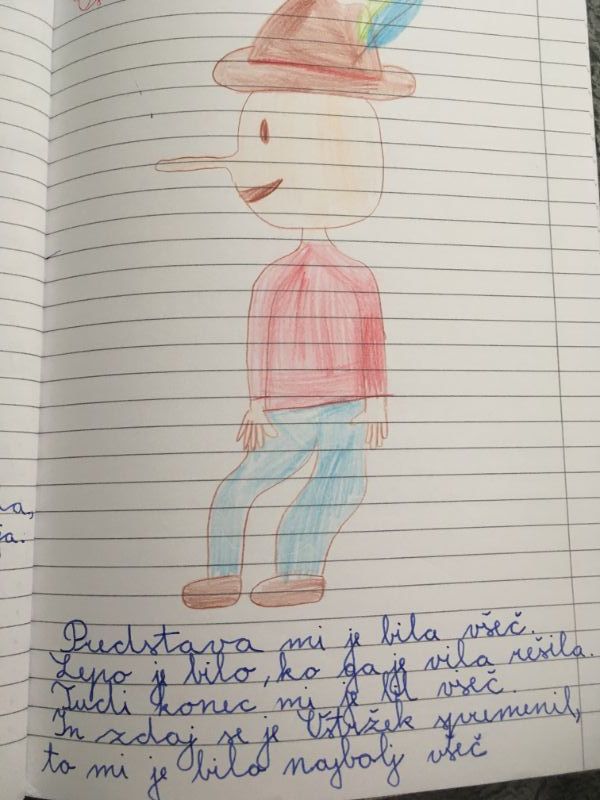 a,
ja.
Predstava mi je bila všeč.
Lepo je bilo, ko ga je vila rešila.
Tudi konec mi je bil všeč.
In zdaj se je Ostržek spremenil,
to mi je bilo najbolj všeč